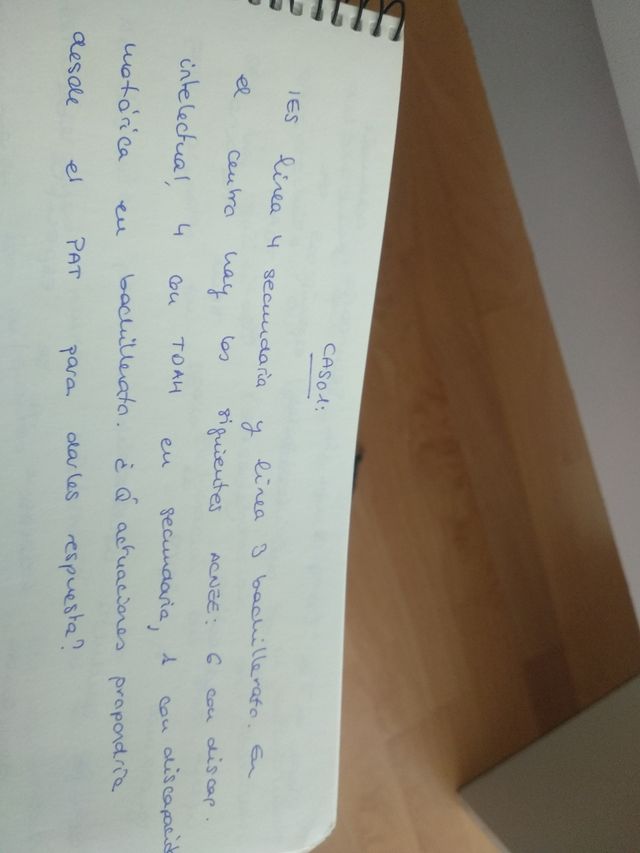 CASO1:
IES línea 4 secundaria y línea 3 bachillerato. En
el centro hay los siguientes ACNEE: 6 con discap.
intelectual, 4 con TDAH en secundaria, 1 con discapacid
motórica en bachillerato. ¿Q actuaciones propondría
desde el PAT para darles respuesta?